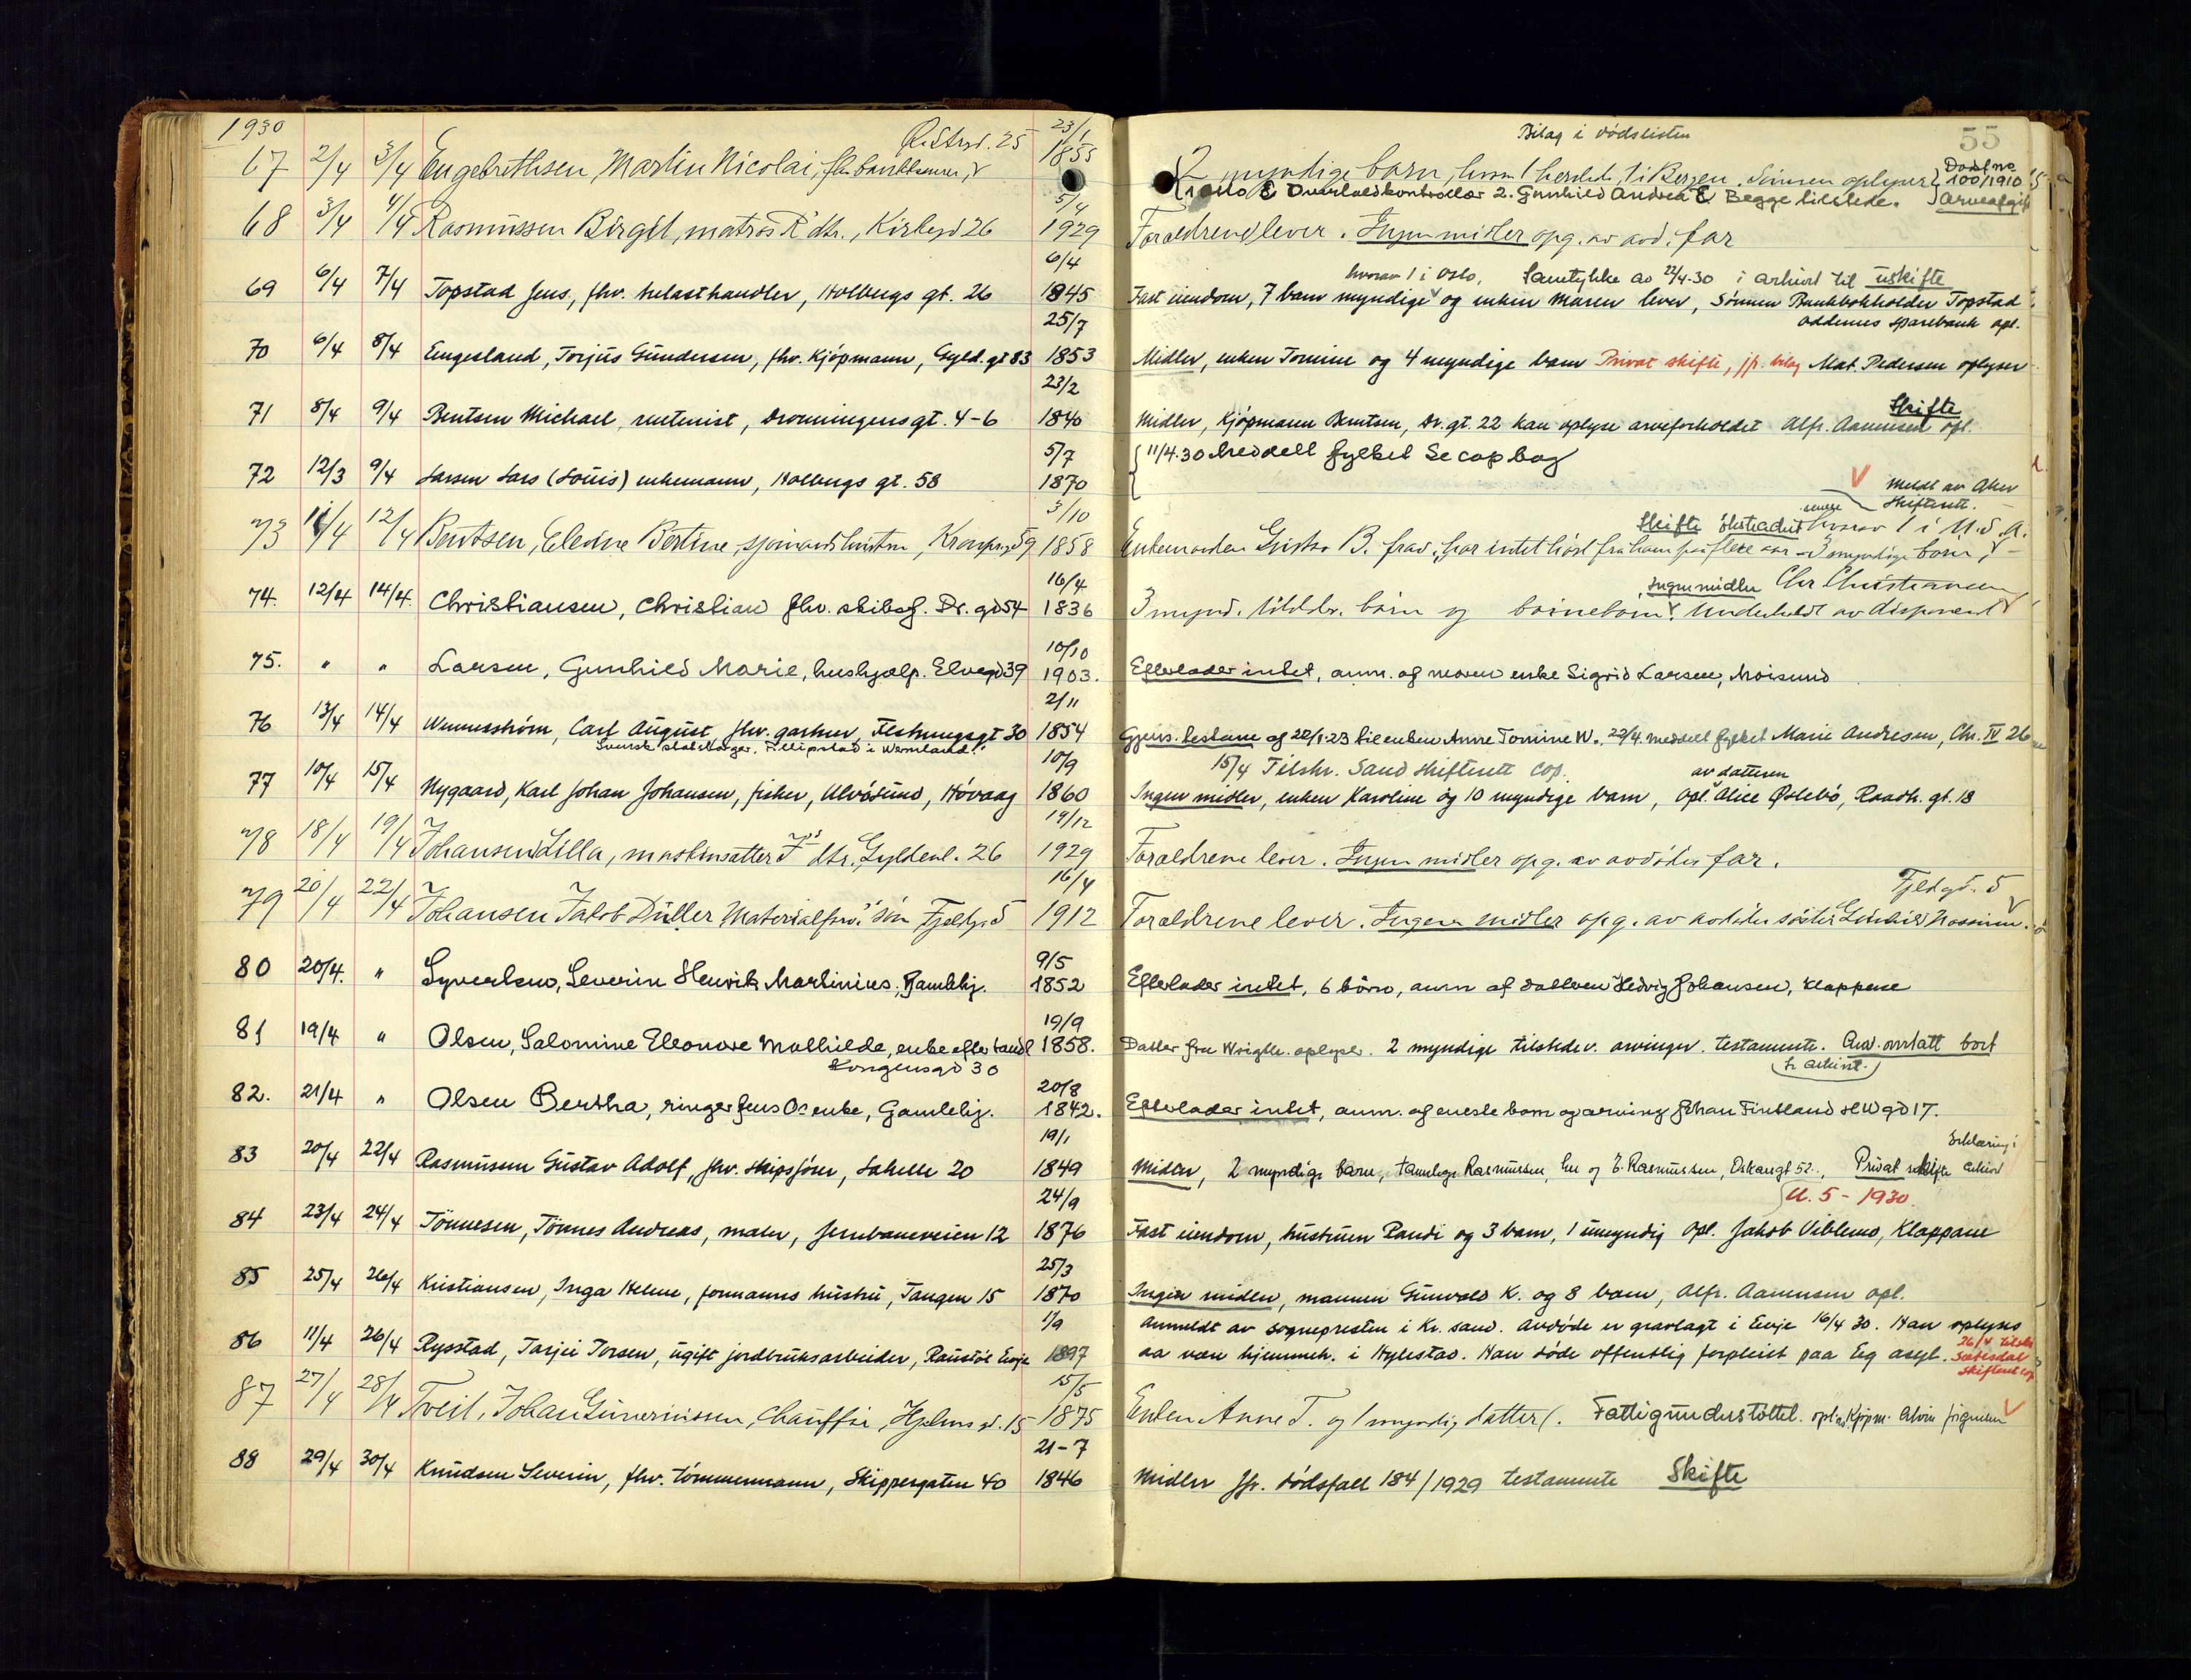 1930
Bilag i dødslisten
55
67 2/4 3/4 Engebrethsen, Martin Nicolai, fhv. bankkasserer, R. Strd. 25 23/1 1855
2 myndige barn, hvor 1 herstede, 1 i Bergen. Sønnen oplyser Dødf no 100/1910
1 Otto E Overtoldkontrollør 2. Gunhild Andrea E Begge tilstede. arveafgift
68 3/4 4/4 Rasmussen Birgit, matros R's dtr., Kirkegd 26 5/4 1929
Forældrene lever. Ingen midler opg. av avd. far
69 6/4 7/4 Topstad Jens, fhv. trelasthandler, Holbergs gt. 26 6/4 1845
hvorav 1 i Oslo. Samtykke av 22/4-30 i arkivet til uskifte
Fast eiendom, 7 barn myndige og enken Maren lever, Sønnen Bankbokholder Topstad
Oddernes Sparebank opl.
70 6/4 8/4 Eugesland, Torjus Gundersen, fhv. kjøpmann, Gyld. gt 83 25/7 1853
Midler, enken Tomine og 4 myndige barn Privat skifte, jfr. bilag Mat. Pedersen oplyser
71 8/4 9/4 Bentsen Michael, rutenist, Dronningensgt. 4-6 23/2 1840
Midler, Kjøpmann Bentsen, Dr. gt. 22 kan oplyse arveforholdet Alfr. Aanunsen opl. Skifte
72 12/3 9/4 Larsen Lars (Louis) enkemann, Holbergs gt. 58 5/7 1870
11/4.30 Meddelt fylket Se copbog
meldt av Aker
Skifterett.
73 11/4 12/4 Bentsen, Eledine Bertine, sjømandshustru, Kronprgd 59 3/10 1858
Skifte hvorav 1 i U.S.A.
Enkemanden Gustav B. frav., har intet hørt fra ham paa flere aar - 3 myndige barn,
74. 12/4 14/4. Christiansen, Christian fhv. skibsf. Dr. gd 54 16/4 1836
Ingen midler Chr Christiansen
3 mynd. tilstdv. barn og barnebarn. Underholdt av disponent
75. " " Larsen, Gunhild Marie, hushjælp. Elvegd 39 10/10 1903.
Efterlader intet, anm. af moren enke Sigrid Larsen, Mosund
76 13/4 14/4 Wennerstrøm, Carl August, fhv. garver, Festningsgt 30 2/11 1854
Svensk statsborger. Fillipstad i Wermland!
Gjens. testam af 22/1-23 til enken Anne Tomine W., 22/4. meddelt fylket Marie Andresen, Chr. IV 26
77 10/4 15/4 Nygaard, Karl Johan Johansen, fisker, Ulvøsund, Høvaag 10/9 1860
15/4 Tilskr. Sand skifterett cop.
Ingen midler, enken Karoline og 10 myndige barn, opl. av datteren Alice Østebø, Raadh. gt. 18
78 18/4 19/4 Johansen Lilla, maskinsætter J's dtr., Gyldenl. 26 19/12 1929
Forældrene lever. Ingen midler opg. av avdødes far.
79 20/4 22/4 Johansen Jakob Düller Materialforv. søn Fjeldgd 5 16/4 1912
Fjeldgd. 5
Forældrene lever. Ingen midler opg. av avdødes søster
80 20/4. " Syvertsen, Severin Henrik Martinius, Gamlehj. 9/5 1852
Efterlader intet, 6 børn, anm af datteren Hedvig Johansen, Klappene
81 19/4 " Olsen, Salomine Eleonore Mathilde, enke efter tandl 19/9 1858.
Kongensgd 30
Datter fru Wright oplyser. 2 myndige tilstedev. arvinger. testamente. Anv. overlatt bort
fr. arkivet.
82. 21/4 " Olsen Bertha, ringer Jens Os enke, Gamlehj. 20/8 1842.
Efterlader intet, anm. af eneste barn og arving Johan Fintland HW gd 17.
83 20/4 22/4 Rasmussen Gustav Adolf, fhv. skipsfører, Lahelle 20 19/1 1849
Midler, 2 myndige barn, tannlege Rasmussen, her og E. Rasmussen, Oskarsgt 52., Privat skifte Erklæring i arkivet
U. 5 - 1930.
84 23/4 24/4 Tønnesen, Tønnes Andreas, maler, Jernbaneveien 12 24/9 1876
Fast eiendom, hustruen Randi og 3 barn, 1 umyndig Opl. Jakob Viblemo, Klappane
85 25/4 26/4 Kristiansen, Inga Helene, formanns hustru, Tangen 15 25/3 1870
Ingen midler, mannen Gunvald K. og 8 barn, Alfr. Aanunsen opl.
86 11/4 26/4 Rysstad, Tarjei Torsen, ugift jordbruksarbeider, Raustøl Evje 1/9 1897
Anmeldt av sogneprestin i Kr. sand. Avdøde er gravlagt i Evje 16/4 30. Han oplyses
aa være hjemmeh. i Hylestad. Han døde offentlig forpleiet paa Eg asyl. 26/4 tilskr Sætesdal Skifterett cop
87 27/4 28/4 Tveit, Johan Gunerinssen, Chauffør, Hjelms gd. 15 15/5 1875
Enken Anne T. og 1 myndig datter. Fattigunderstøttet. opl. av Kjøpm. Alvin Jørgensen
88 29/4 30/4 Knudsen Severin, fhv. tømmermann, Skippergaten 40 21-7 1846
Midler Jfr. dødsfall 184/1929 testamente Skifte